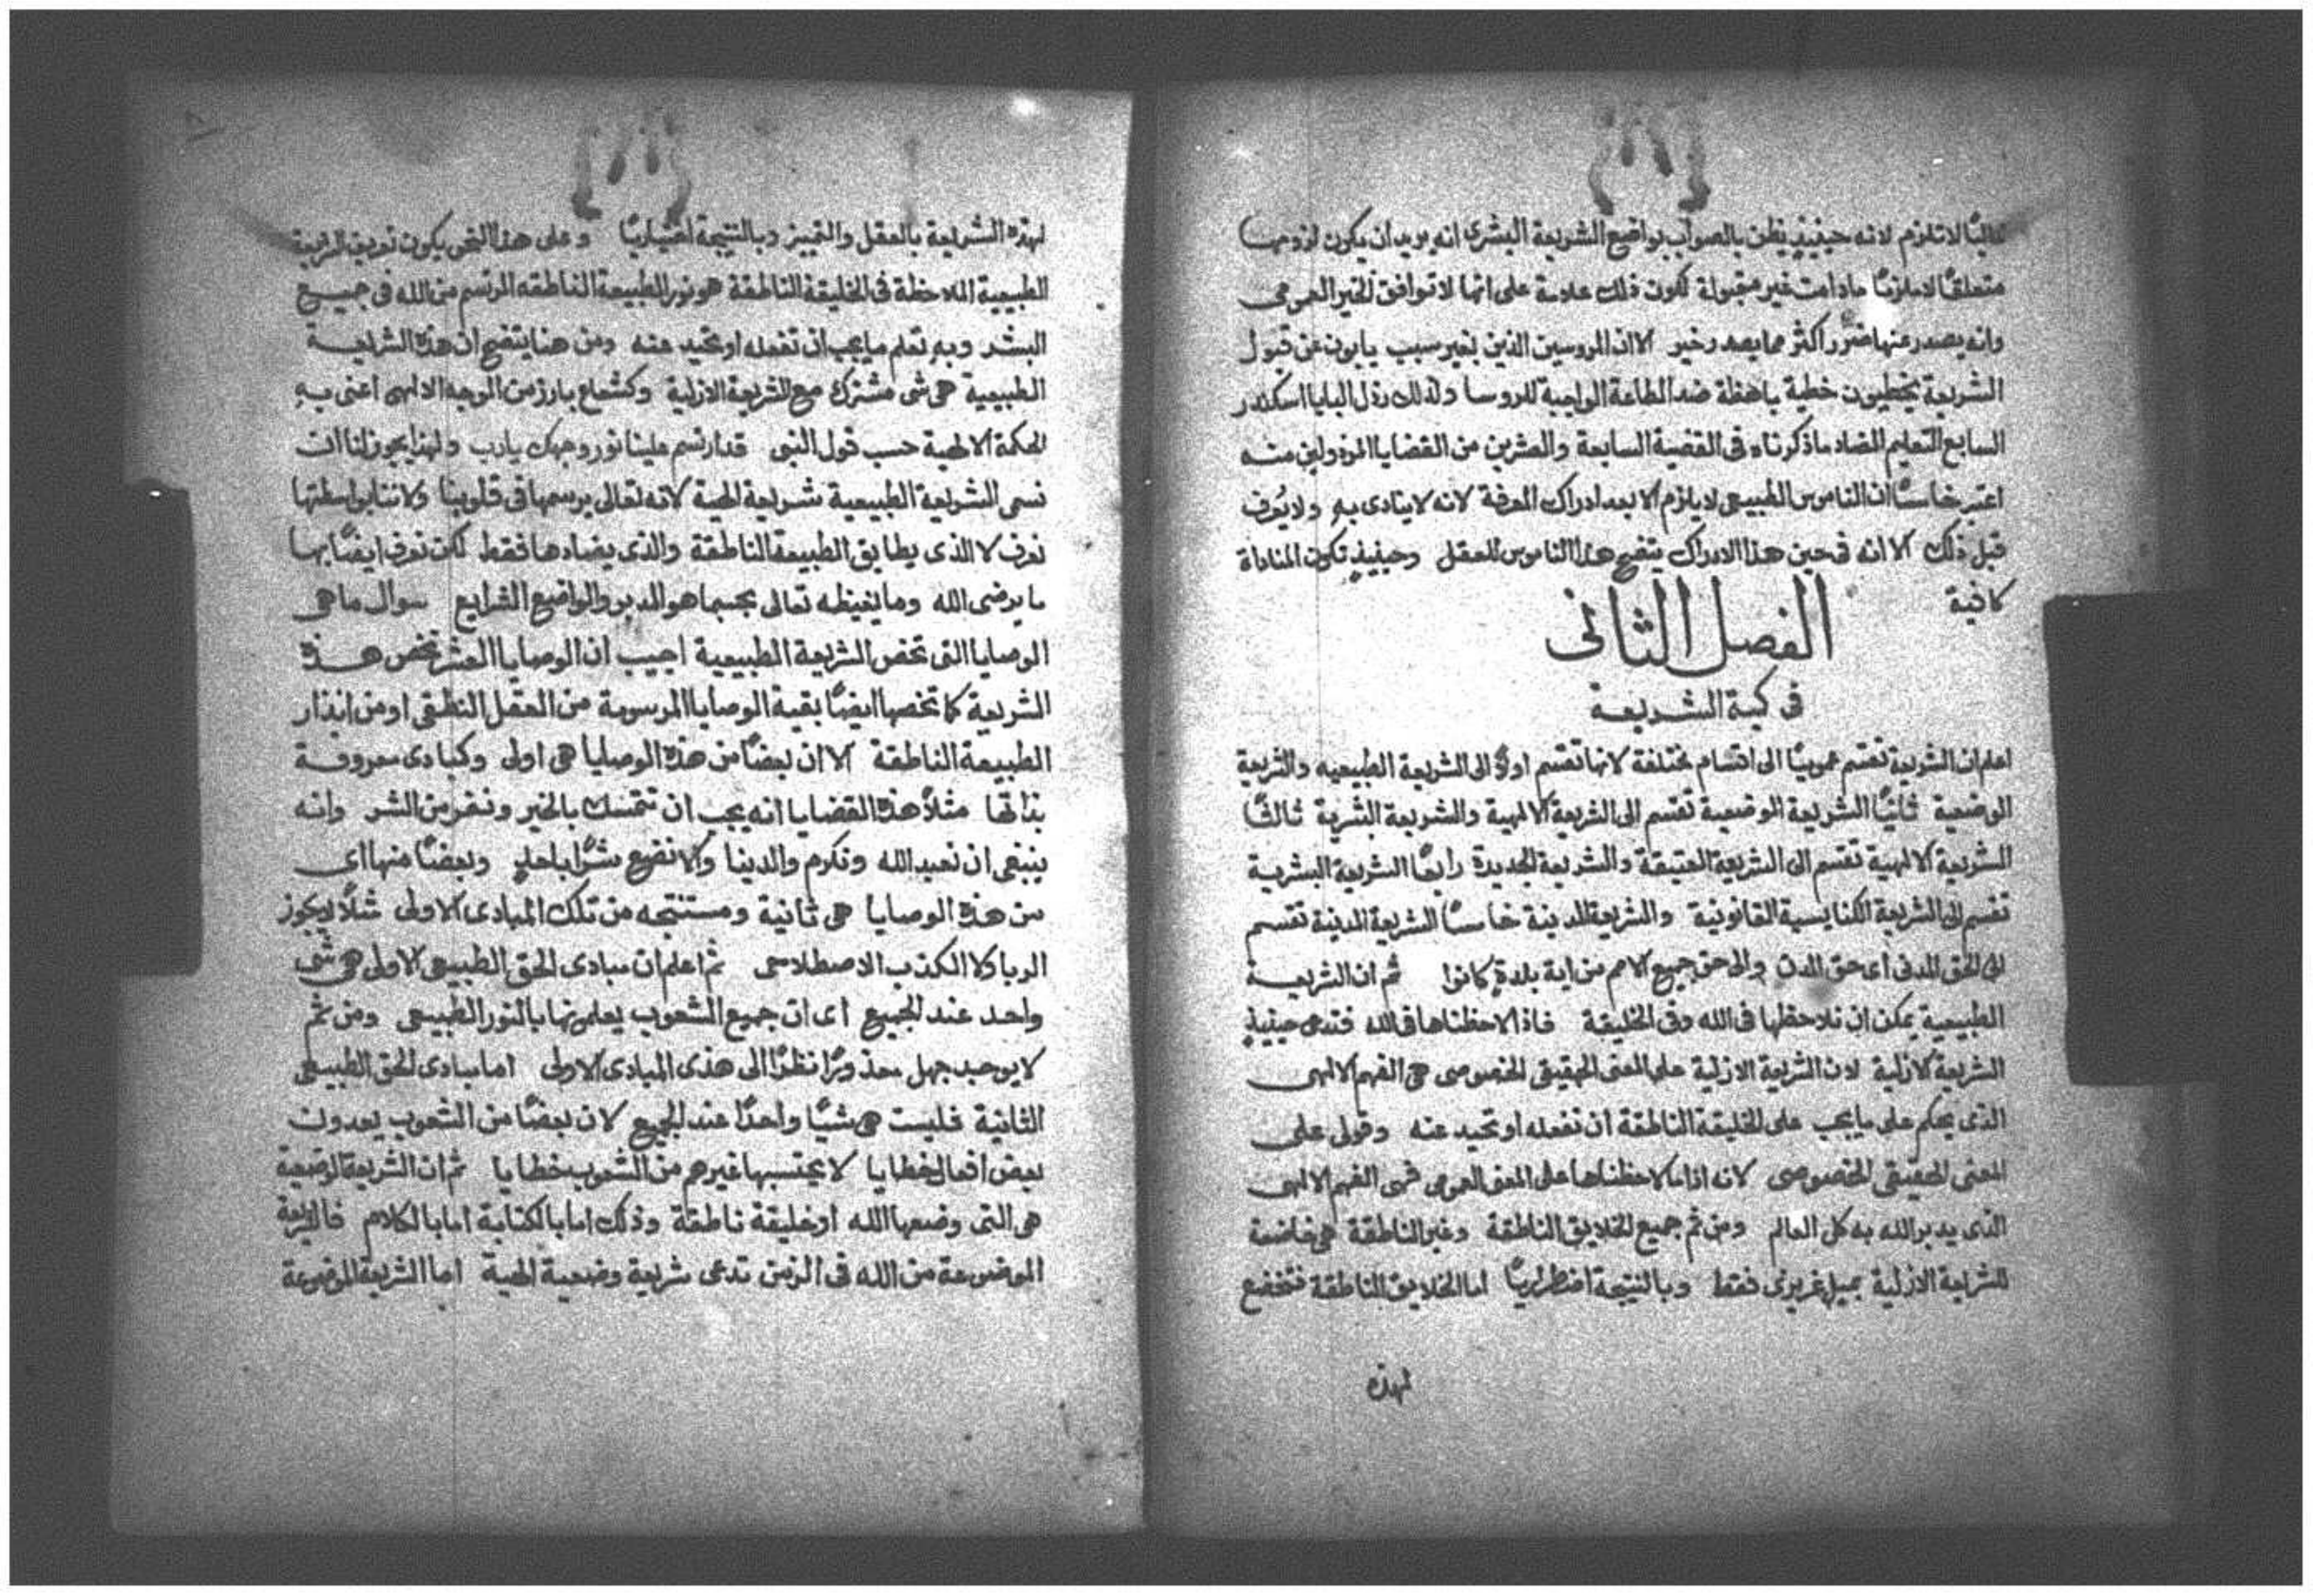 غالبًا لا تلزم لانه حينيذٍ يظن بالصواب بواضع الشريعة البشرى انه يريد ان يكون لزومها
متعلقًا لا ملزمًا ما دامت غير مقبولة لكون ذلك علامة على انها لا توافق الخير العمومى
وانه يصدر عنها ضرر اكثر مما يصدر خير الا ان المروسين الذين بغير سبب يابون عن قبول
الشريعة يخطيون خطية باهظة ضد الطاعة الواجبة للروسا ولذلك رذل البابا اسكندر
السابع التعليم المضاد ما ذكرناه فى القضية السابعة والعشرين من القضايا المرذولين منه
اعتبر خامسًا ان الناموس الطبيعى لا يلزم الا بعد ادراك المعرفة لانه لا ينادى به ولا يُعرف
قبل ذلك الا انه فى حين هذا الادراك يتضح هذا الناموس للعقل وحينيذٍ تكون المناداة
كافية
الفصل الثانى
فى كمية الشريعة
اعلم ان الشريعة تقسم عموميًا الى اقسام مختلفة لانها تقسم اولًا الى الشريعة الطبيعيه والشريعة
الوضعية ثانيًا الشريعة الوضعية تقسم الى الشريعة الالهية والشريعة البشرية ثالثًا
الشريعة الالهية تقسم الى الشريعة العتيقة والشريعة الجديدة رابعًا الشريعة البشرية
تقسم الى الشريعة الكنايسية القانونية والشريعة المدنية خامسًا الشريعة المدنية تقسم
الى الحق المدنى اى حق المدن والى حق جميع الامم من اية بلدةٍ كانوا ثم ان الشريعة
الطبيعية يمكن ان نلاحظها فى الله وفى الخليقة فاذا لاحظناها فى الله فتدعى حينيذٍ
الشريعة الازلية لان الشريعة الازلية على المعنى الحقيقى الخصوصى هى الفهم الالهى
الذى يحكم على ما يجب على الخليقة الناطقة ان تفعله او تحيد عنه وقولى على
المعنى الحقيقى الخصوصى لانه اذا ما لاحظناها على المعنى العومى فهى الفهم الالهى
الذى يدبر الله به كل العالم ومن ثم جميع الخلايق الناطقة وغير الناطقة هى خاضعة
للشريعة الازلية بميلٍ غريزى فقط وبالنتيجة اضطراريًا اما الخلايق الناطقة فتخضع
لهذه
لهذه الشريعة بالعقل والتمييز وبالنتيجة اختياريًا وعلى هذا النحو يكون تعريف الشريعة
الطبيعية الملاحظة فى الخليقة الناطقة هو نور الطبيعة الناطقه المرتسم من الله فى جميع
البشر وبهِ تعلم ما يجب ان تفعله او تحيد عنه ومن هنا يتضح ان هذه الشريعة
الطبيعية هى شى مشترك مع الشريعة الازلية وكشعاع بارز من الوجه الالهى اعنى بهِ
الحكمة الالهية حسب قول النبى قد ارتسم علينا نور وجهك يا رب ولهذا يجوز لنا ان
نسمى الشريعة الطبيعية شريعة الهية لانه تعالى يرسمها فى قلوبنا ولاننا بواسطتها
نعرف لا الذى يطابق الطبيعة الناطقة والذى يضادها فقط لكن نعرف ايضًا بها
ما يرضى الله وما يغيظه تعالى بحسبما هو المدبر والواضع الشرايع سوال ما هى
الوصايا التى تخص الشريعة الطبيعية اجيب ان الوصايا العشر تخص هذه
الشريعة كما تخصها ايضًا بقية الوصايا المرسومة من العقل النطقى او من انذار
الطبيعة الناطقة الا ان بعضًا من هذه الوصايا هى اولى وكمبادى معروفة
بذاتها مثلًا هذه القضايا انه يجب ان نتمسك بالخير ونفر من الشر وانه
ينبغى ان نعبد الله ونكرم والدينا والا نضع شرًا باحدٍ وبعضًا منها اى
من هذه الوصايا هى ثانية ومستنتجه من تلك المبادى الاولى مثلًا لا يجوز
الربا ولا الكذب الاصطلاحى ثم اعلم ان مبادى الحق الطبيعى الاولى هى شى
واحد عند الجميع اى ان جميع الشعوب يعلمونها بالنور الطبيعى ومن ثم
لا يوجد جهل معذورًا نظرًا الى هذى المبادى الاولى اما مبادى الحق الطبيعى
الثانية فليست هى شيًا واحدًا عند الجميع لان بعضًا من الشعوب يعدون
بعض افعال خطايا لا يحتسبها غيرهم من الشعوب خطايا ثم ان الشريعة الوضعية
هى التى وضعها الله او خليقة ناطقة وذلك اما بالكتابة اما بالكلام فالشريعة
الموضوعة من الله فى الزمن تدعى شريعة وضعية الهية اما الشريعة الموضوعة